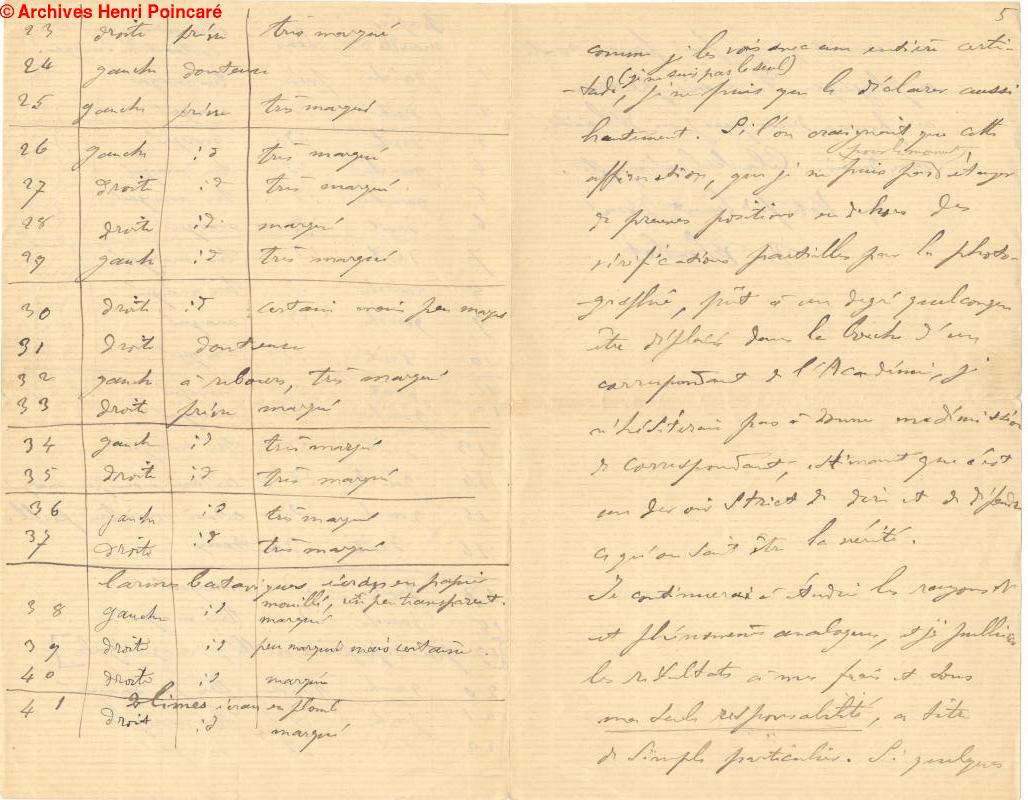 © Archives Henri Poincaré
23 droite prévu très marqué
24 gauche douteuse
25 gauche prévu très marqué
26 gauche id très marqué
27 droite id très marqué
28 droite id marqué
29 gauche id très marqué
30 droite id certain mais peu marqué
31 droite douteuse
32 gauche à rebours, très marqué
33 droite prévu marqué
34 gauche id très marqué
35 droite id très marqué
36 gauche id très marqué
37 droite id très marqué
larmes bataviques, écran en papier
mouillé, un peu transparent.
38 gauche id marqué
39 droite id peu marqué mais certain.
40 droite id marqué
2 limes écran en plomb
41 droite id marqué
5
comme je les vois avec une entière certi-
(je ne suis pas le seul)
-tude, je ne puis que le déclarer aussi
hautement. Si l'on craignait que cette
(pour le moment)
affirmation, que je ne puis pas étayer
de preuves positives en dehors des
vérifications partielles par la photo-
graphie, pût à un degré quelconque
être déplacée dans la bouche d'un
correspondant de l'Académie, je
n'hésiterais pas à donner ma démission
de correspondant, estimant que c'est
un devoir strict de dire et de défendre
ce qu'on sait être la vérité.
Je continuerai à étudier les rayons N
et phénomènes analogues, et je publierai
les résultats à mes frais et sous
ma seule responsabilité, à titre
de simple particulier. Si quelques